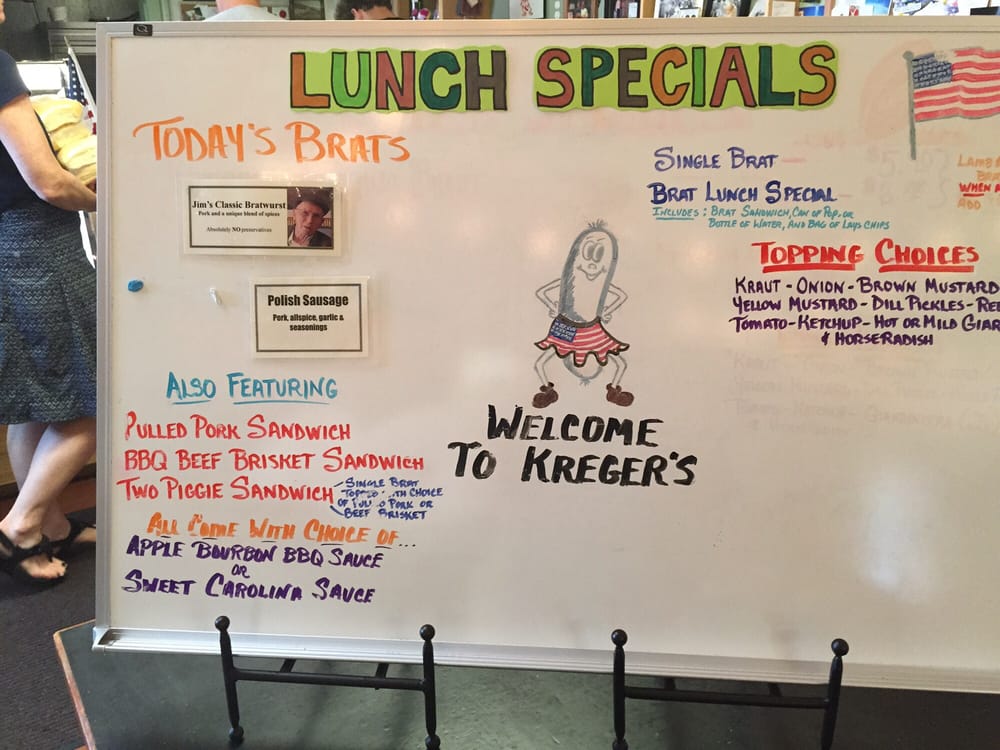 LUNCH SPECIALS
TODAY'S BRATS
Jim's Classic Bratwurst
Pork and a unique blend of spices
Absolutely NO preservatives
Polish Sausage
Pork, allspice, garlic &
seasonings
ALSO FEATURING
PULLED PORK SANDWICH
BBQ BEEF BRISKET SANDWICH
TWO PIGGIE SANDWICH
SINGLE BRAT
CHOICE
OF PORK OR
BEEF BRISKET
ALL COME WITH CHOICE OF...
APPLE BOURBON BBQ SAUCE
OR
SWEET CAROLINA SAUCE
WELCOME
TO KREGER'S
SINGLE BRAT
BRAT LUNCH SPECIAL
INCLUDES: BRAT SANDWICH, CAN OF POP, OR
BOTTLE OF WATER, AND BAG OF LAYS CHIPS
LAMB
WHEN
ADD
TOPPING CHOICES
KRAUT - ONION - BROWN MUSTARD
YELLOW MUSTARD - DILL PICKLES - REL
TOMATO - KETCHUP - HOT OR MILD GIAR
& HORSERADISH